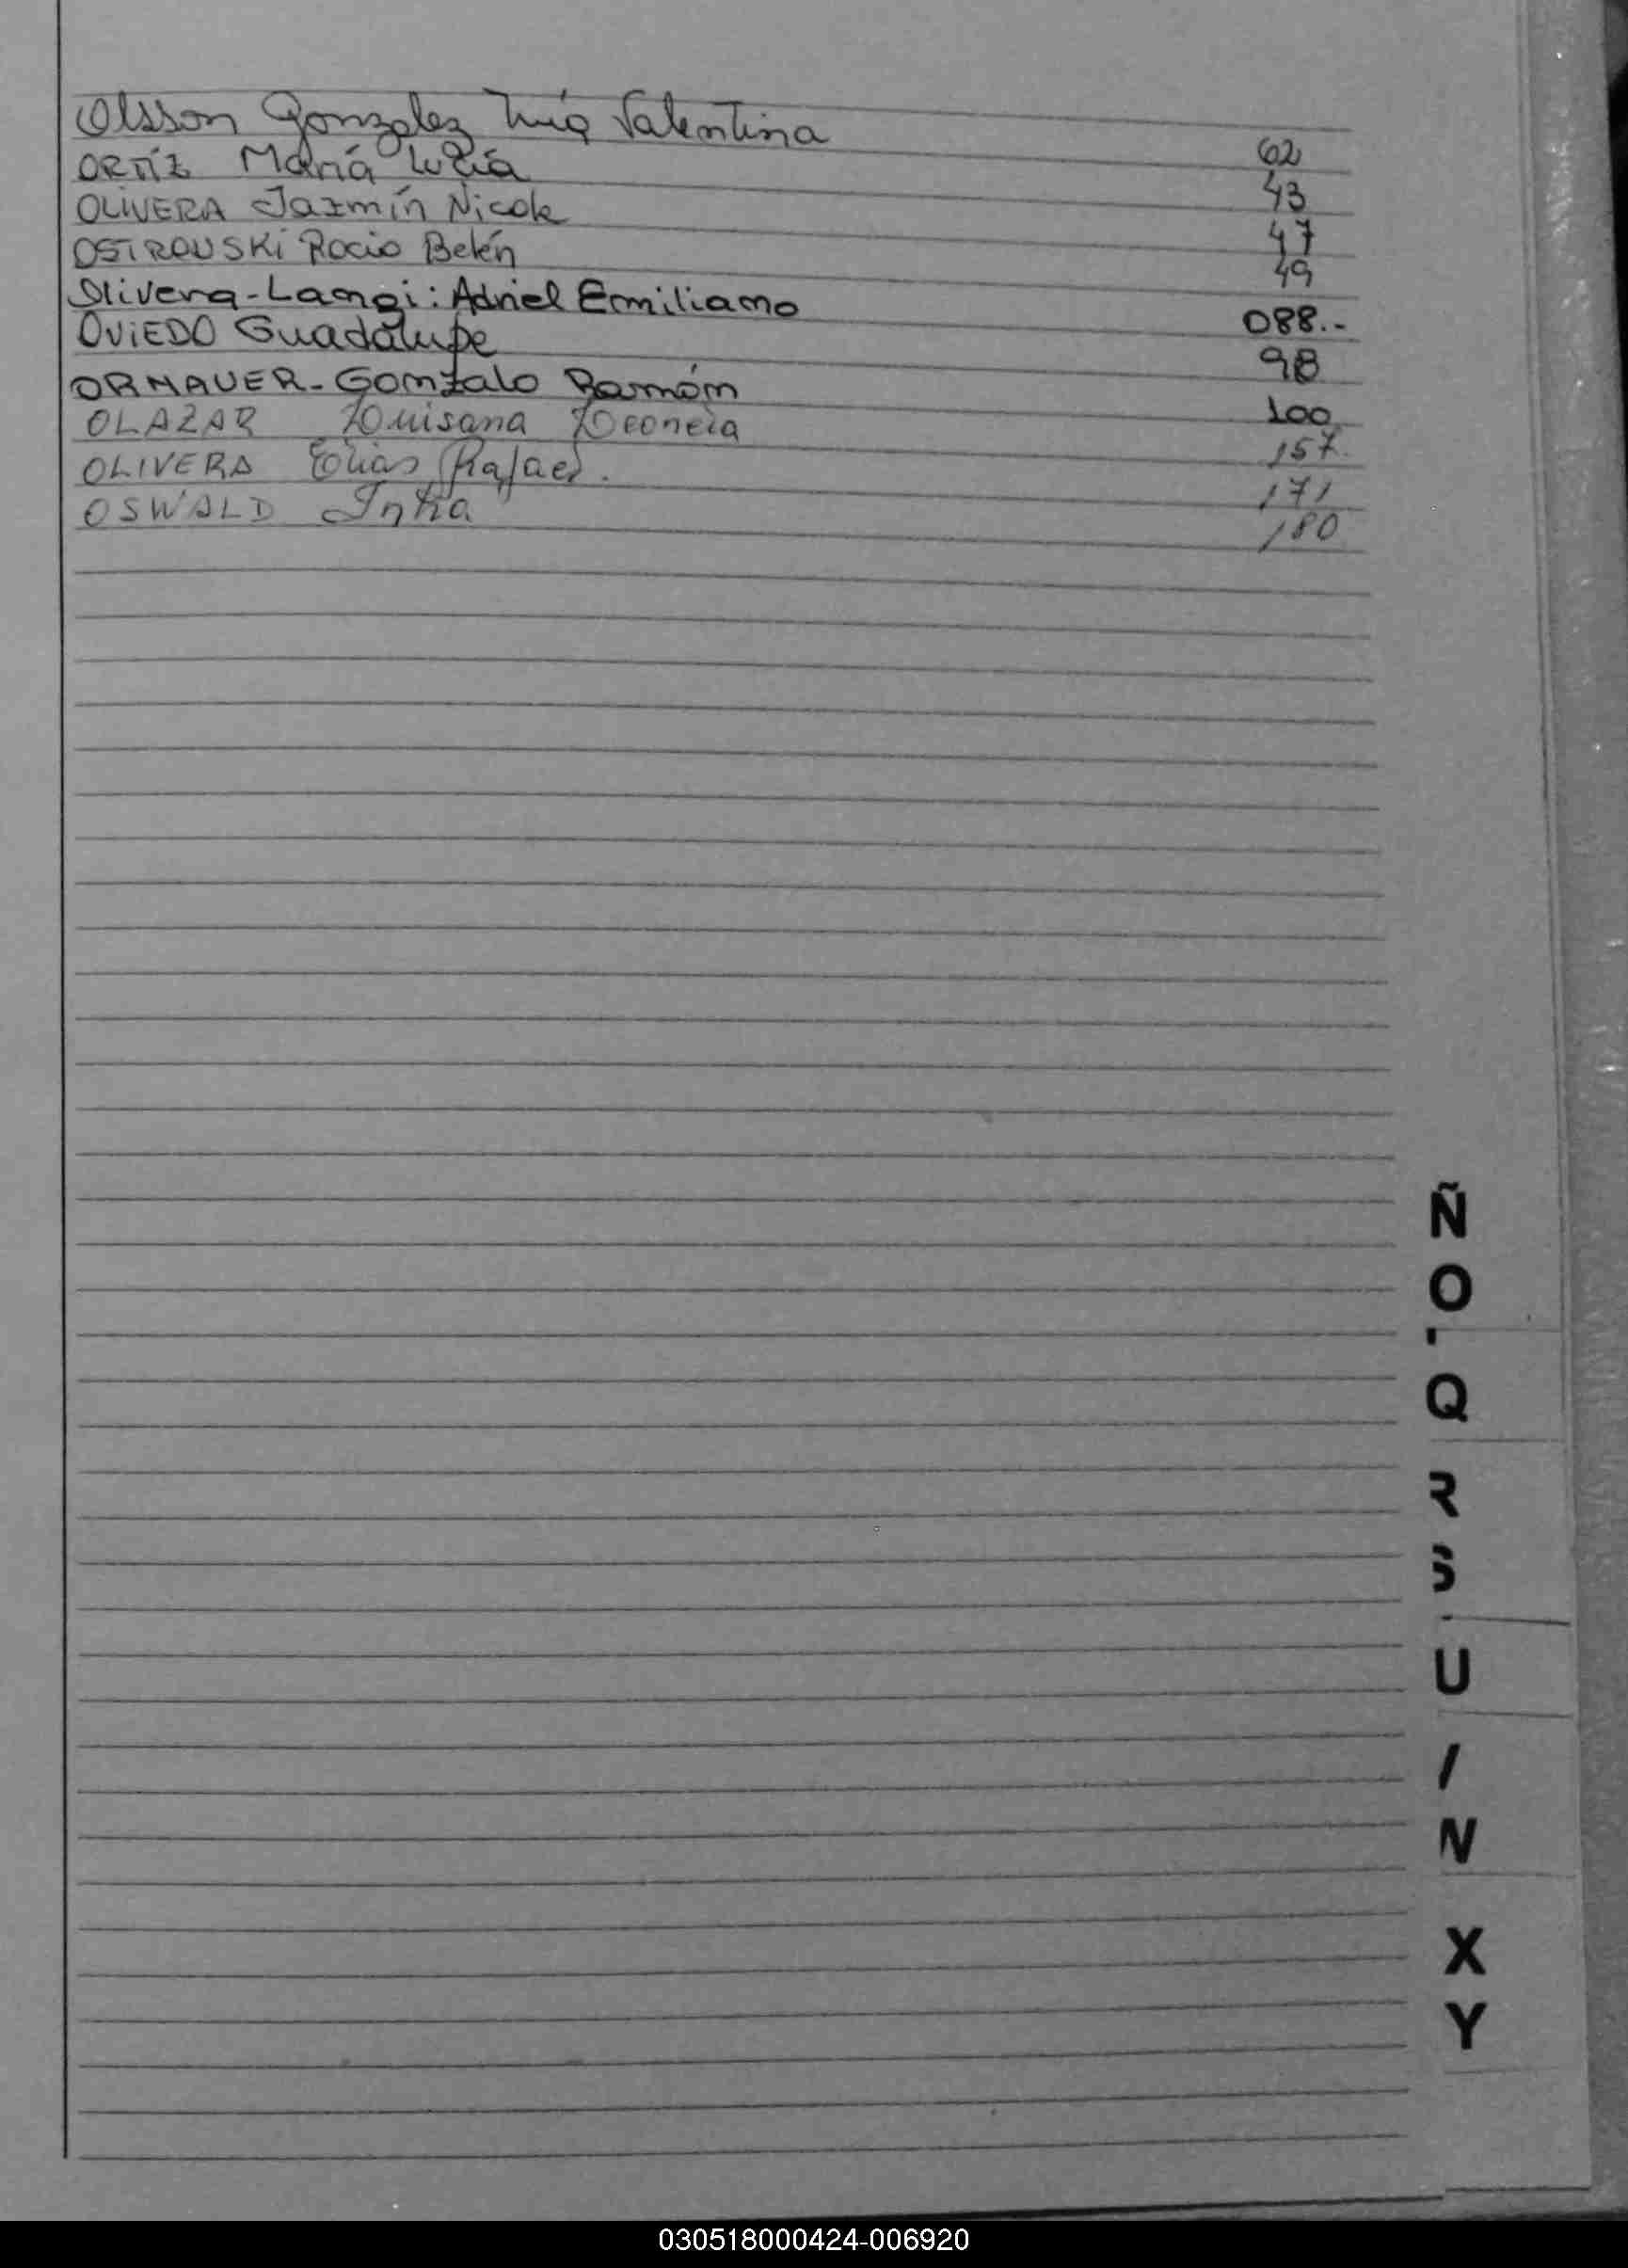 Olsson Gonzalez Valentina 62
ORTÍZ María Lucía 43
OLIVERA Jazmín Nicole 47
OSTROUSKI Rocio Belén 49
Olivera-Langi: Adriel Emiliano 088.-
OVIEDO Guadalupe 98
ORMAUER-Gonzalo Ramón 100
OLAZAR Luisana Leonela 157
OLIVERA Elias Rafael. 171
OSWALD 180
Ñ
O
Q
R
S
U
N
X
Y
030518000424-006920